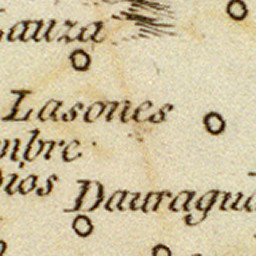 Lauza
Lasones
mbre
Dios
Dauragu